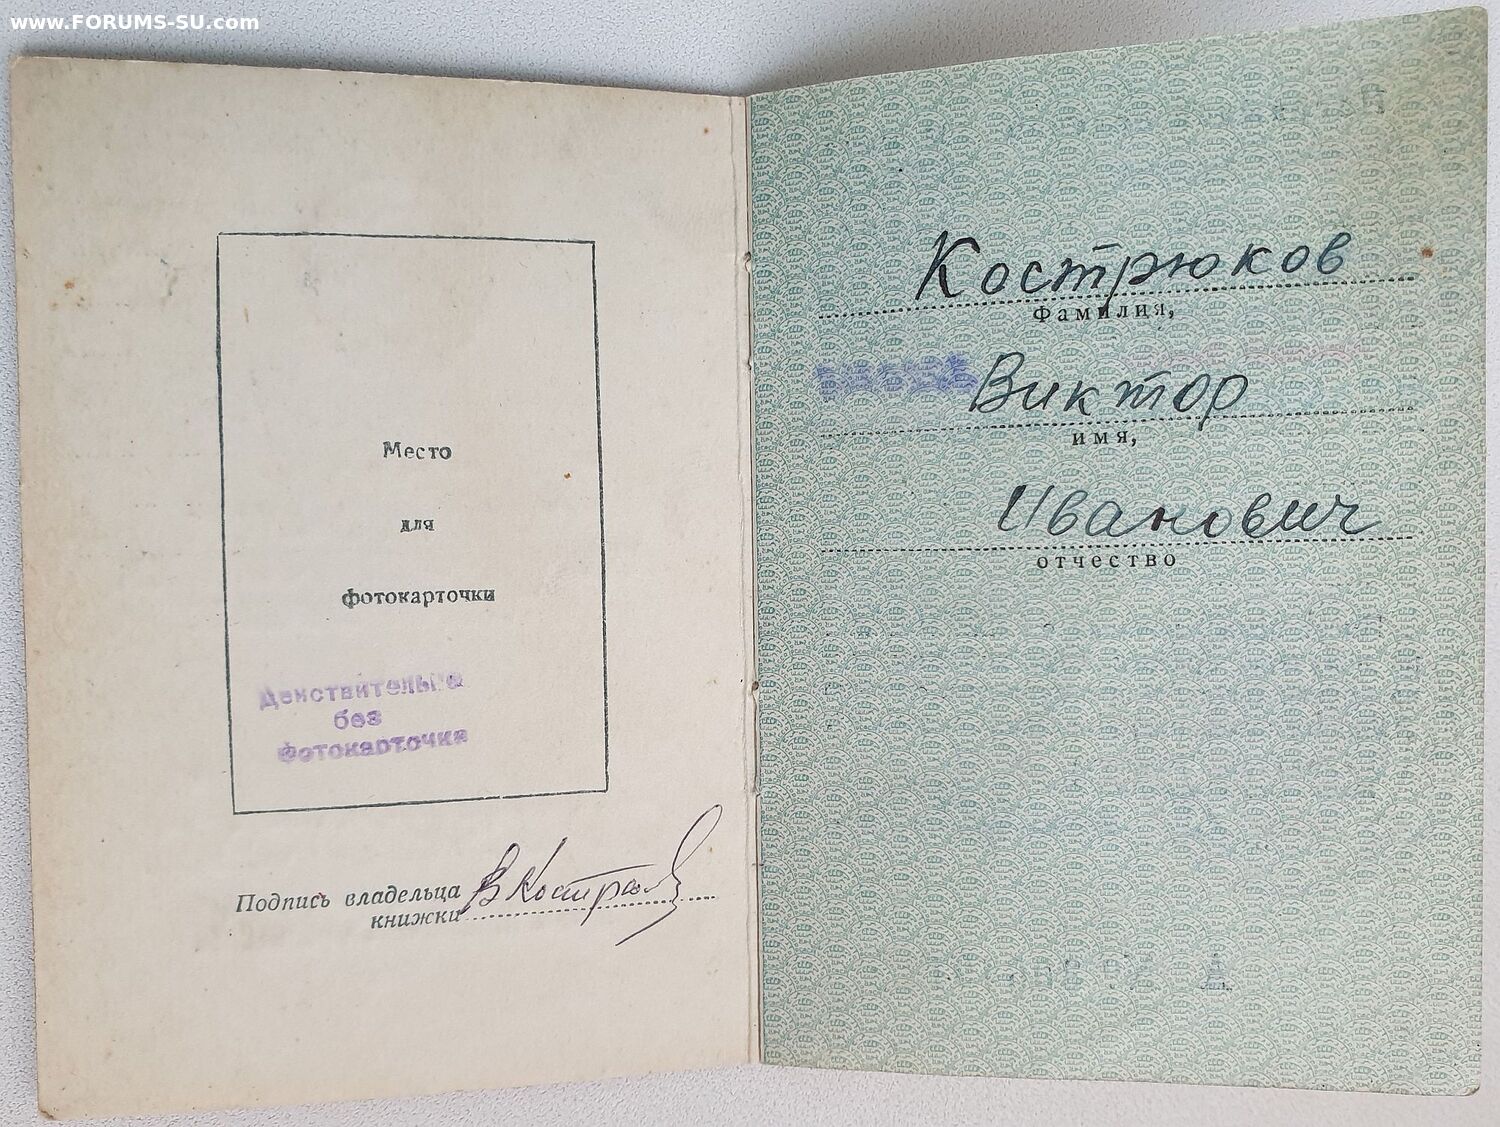 www.FORUMS-SU.com
Место
для
фотокарточки
Действительна
без
фотокарточки
Подпись владельца
книжки
Кострюков
Фамилия,
Виктор
имя,
Иванович
отчество